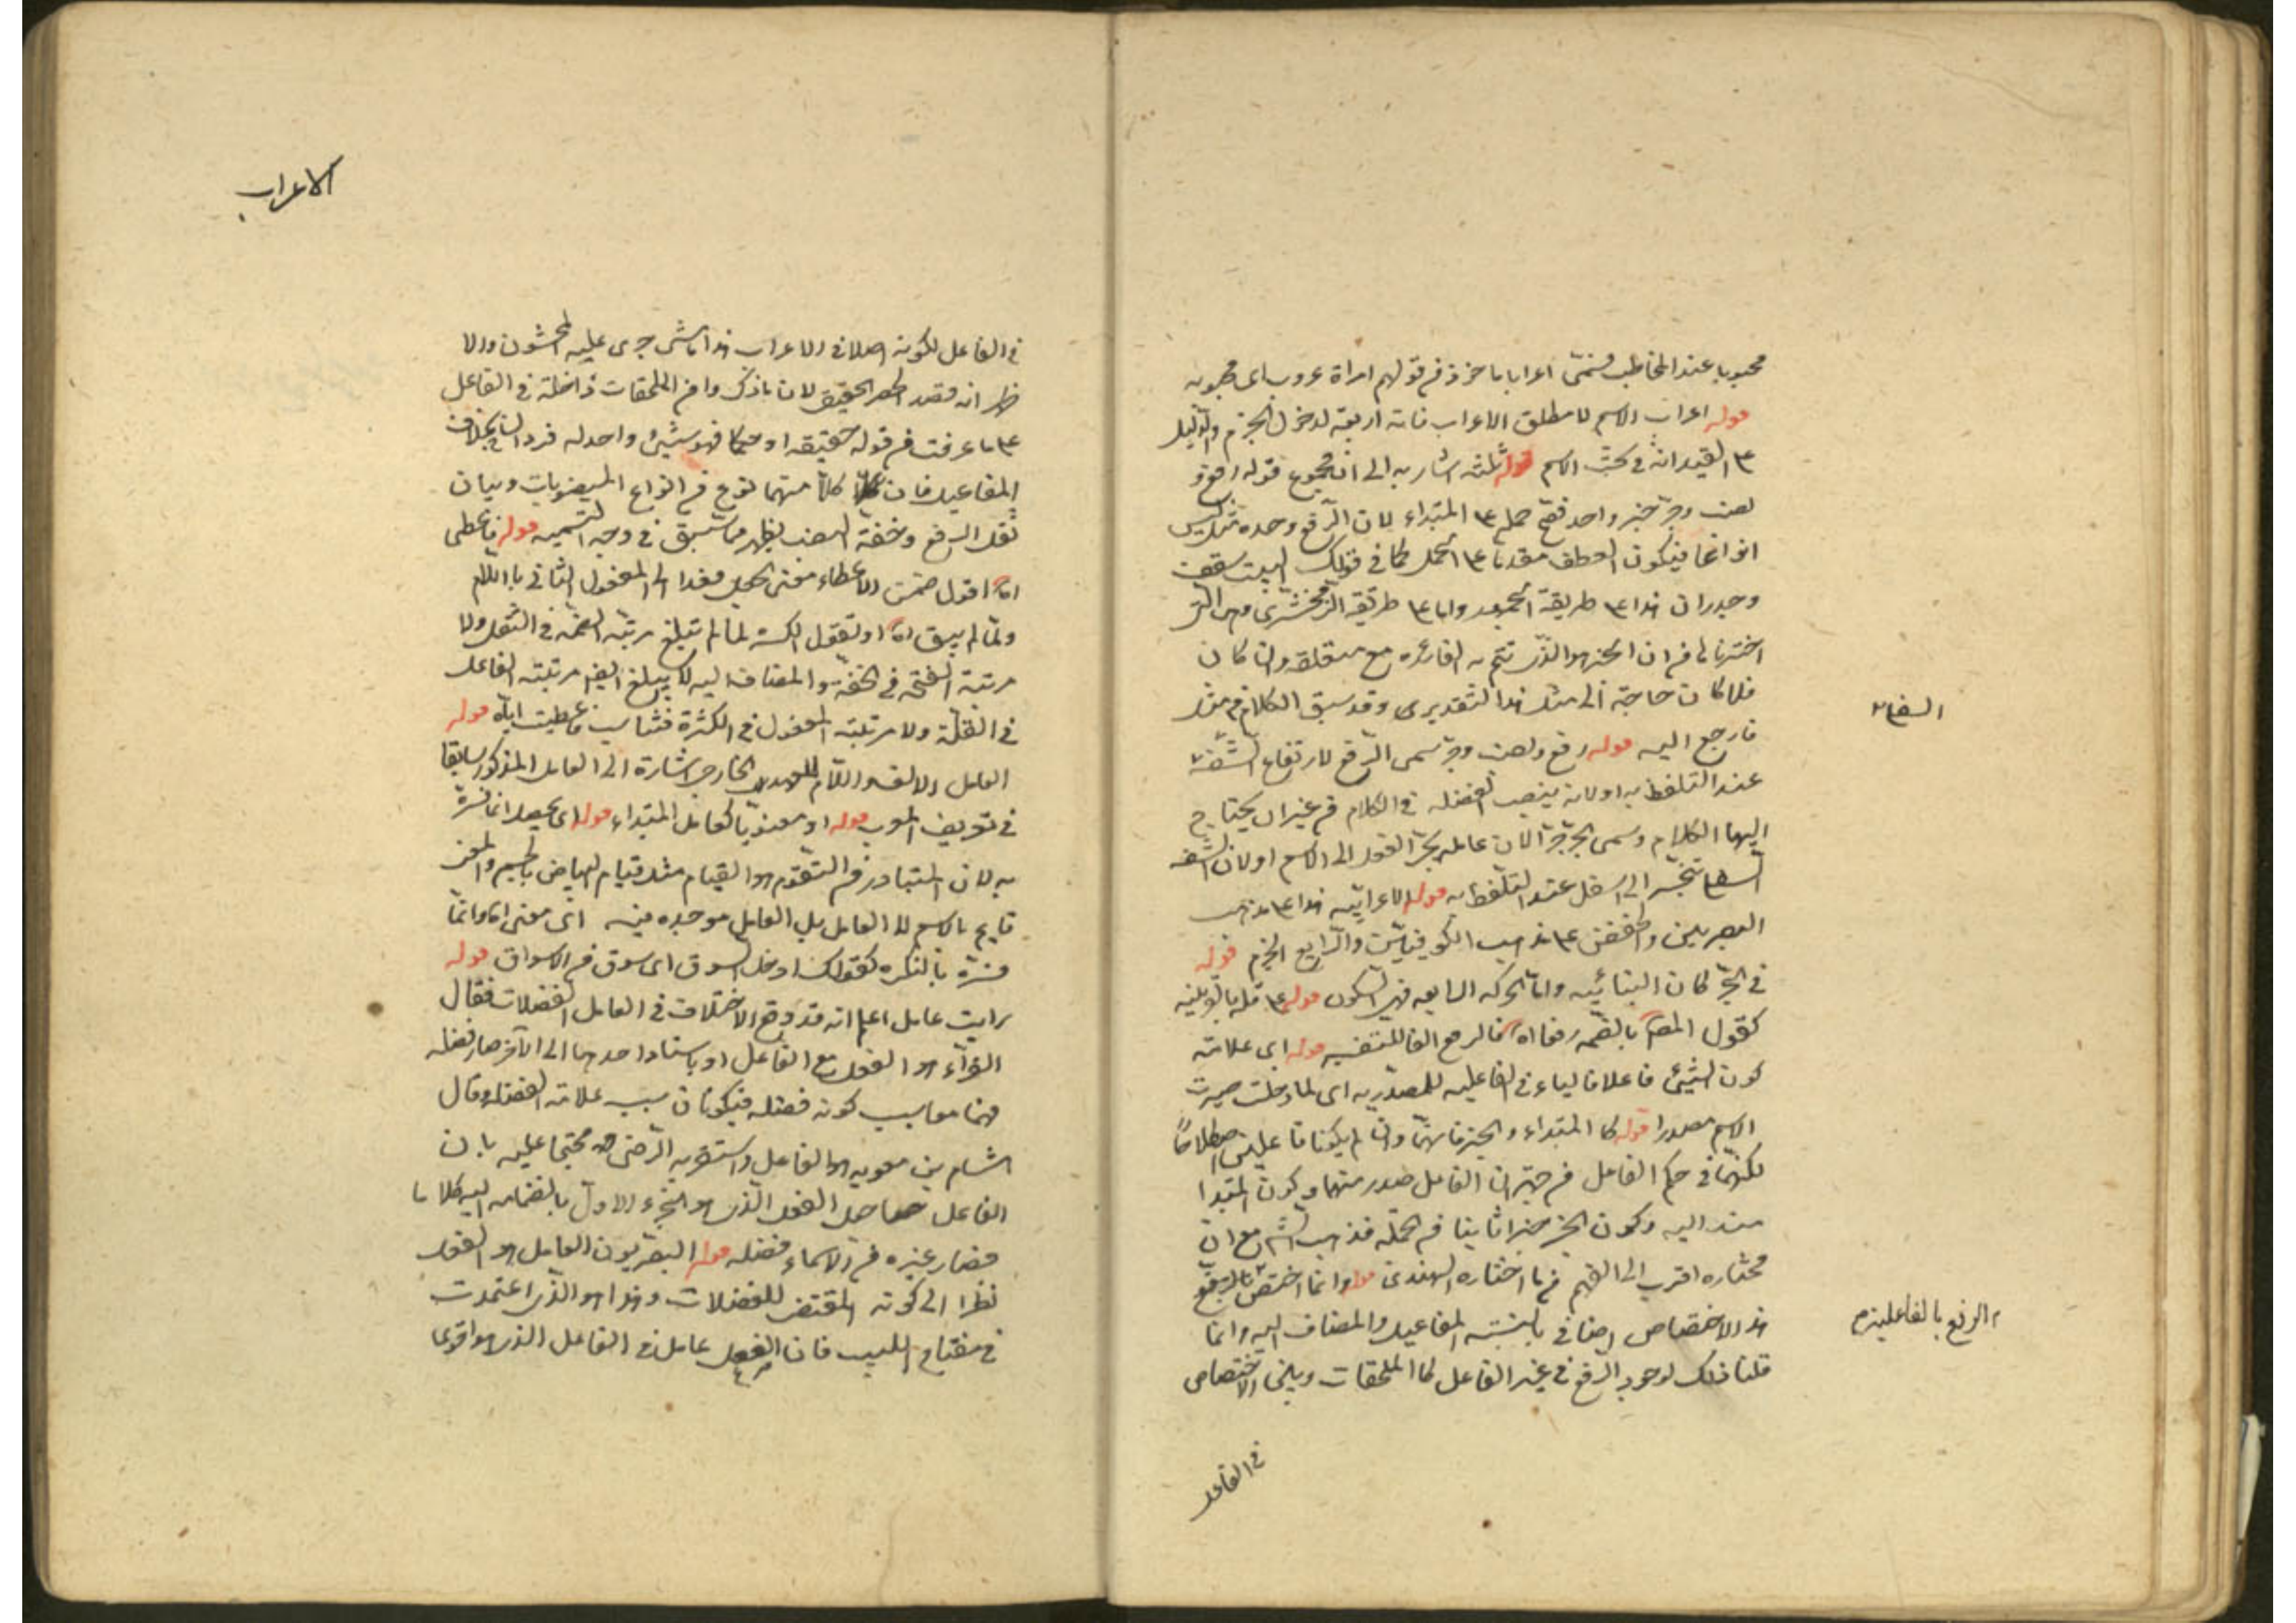 محبوبا عند المخاطب فسمى اعرابا ماخوذ من قولهم امراة عروب اى محبوبه
قوله اعراب الاسم لا مطلق الاعراب فانه اربعة لدخول الجزم والدليل
على القيد انه فى بحث الاسم قوله ثلثة اشار به الى ان مجموع قوله رفع و
نصب وجر خبر واحد فصح حمله على المبتداء لان الرفع وحده مثلا ليس
انواعا فيكون العطف مقدما على الحمل كما فى قولك البيت سقف
وجدران هذا على طريقة الجمهور واما على طريقة الزمخشرى وهى التى
اخترنا من ان الخبر هو الذى تتم به الفائده مع متعلقه وان كان
فلا كان حاجة الى مثل هذا التقديرى وقد سبق الكلام فى مثله
فارجع اليه قوله رفع ونصب وجر سمى الرفع لارتفاع الشفة
السفلى
عند التلفظ به اولانه ينصب الفضله فى الكلام من غير ان يحتاج
اليها الكلام وسمى الجر جرا لان عامله يجر الفعل الى الاسم او لان الشفه
السفلى تنجر الى اسفل عند التلفظ به قوله الاعرابية هذا على مذهب
البصريين والخفض على مذهب الكوفيين والرابع الجزم قوله
فى الجر كان البنائيه واما الحركه السابعه فهى السكون قوله على قله بالقرينه
كقول المص بالضمه رفعا اه فالرفع الفا للتفسير قوله اى علامة
كون الشيئ فاعلا فالياء فى الفاعليه للمصدريه اى لما دخلت صيرت
الاسم مصدرا قوله كا المبتداء والخبر فانهما وان لم يكونا فاعلين اصطلاحا
لكنهما فى حكم الفاعل من حيث ان الفاعل صدر منهما وكون المبتدا
مسند اليه وكون الخبر جزا ثانيا من الجملة فذهب الش مع ان
مختاره اقرب الى الفهم مما اختاره الهندى قوله وانما اختص الرفع
الرفع بالفاعلية م
هذا الاختصاص اضافى بالنسبة المفاعيل والمضاف اليه وانما
قلنا ذلك لوجود الرفع فى غير الفاعل كما الملحقات وبين الاختصاص
فى الفاعل
الاعراب
فى الفاعل لكونه اصلا فى الاعراب هذا ما شى جرى عليه المحشون والا
ظهر انه قصد الحصر الحقيقى لان ما ذكروا من الملحقات داخلة فى الفاعل
على ما عرفت من قوله حقيقة او حكما فهو شيئ واحد له فردان بخلاف
المفاعيل فان كلا منهما نوع من انواع المنصوبات وبيان
ثقل الرفع وخفة النصب يظهر مما سبق فى وجه التسميه قوله فاعطى
اه اقول ضمن الاعطاء معنى الجعل فعدا الى المفعول الثانى باللام
ولما لم يبق اه او نقول الكسره لما لم تبلغ مرتبة الضمه فى الثقل ولا
مرتبة الفتحه فى الخفة والمضاف اليه لا يبلغ ايضا مرتبة الفاعل
فى القلة ولا مرتبة المفعول فى الكثرة فتناسب فاعطيت اياه قوله
العامل الالف واللام للعهد الخارجى اشارة الى العامل المذكور سابقا
فى تعريف المعرب قوله او معنويا كعامل المبتداء قوله اى يحصل انما فسره
به لان المتبادر من التقوم هو القيام مثل قيام البياض بالجسم والمعنى
قايم بالاسم لا العامل بل العامل موجده فيه اى معنى اه وانما
فسره بالنكره كقولك ادخل السوق اى سوق من الاسواق قوله
رايت عامل اعلم انه قد وقع الاختلاف فى العامل الفضلات فقال
الفراء هو الفعل مع الفاعل اذ باسناد احدهما الى الآخر صار فضله
فهما معا سبب كونه فضله فيكونان سبب علامة الفضله وقال
هشام بن معويه هو الفاعل واستقربه الرضى محتجا عليه بان
الفاعل جعل الفعل الذى هو الجزء الاول بانضمامه اليه كلاما
فصار غيره من الاسماء فضله قوله البصريون العامل هو الفعل
نظرا الى كونه المقتضى للفضلات وهذا هو الذى اعتمدت
فى مفتاح اللبيب فان الفعل عامل فى الفاعل الذى هو اقوى